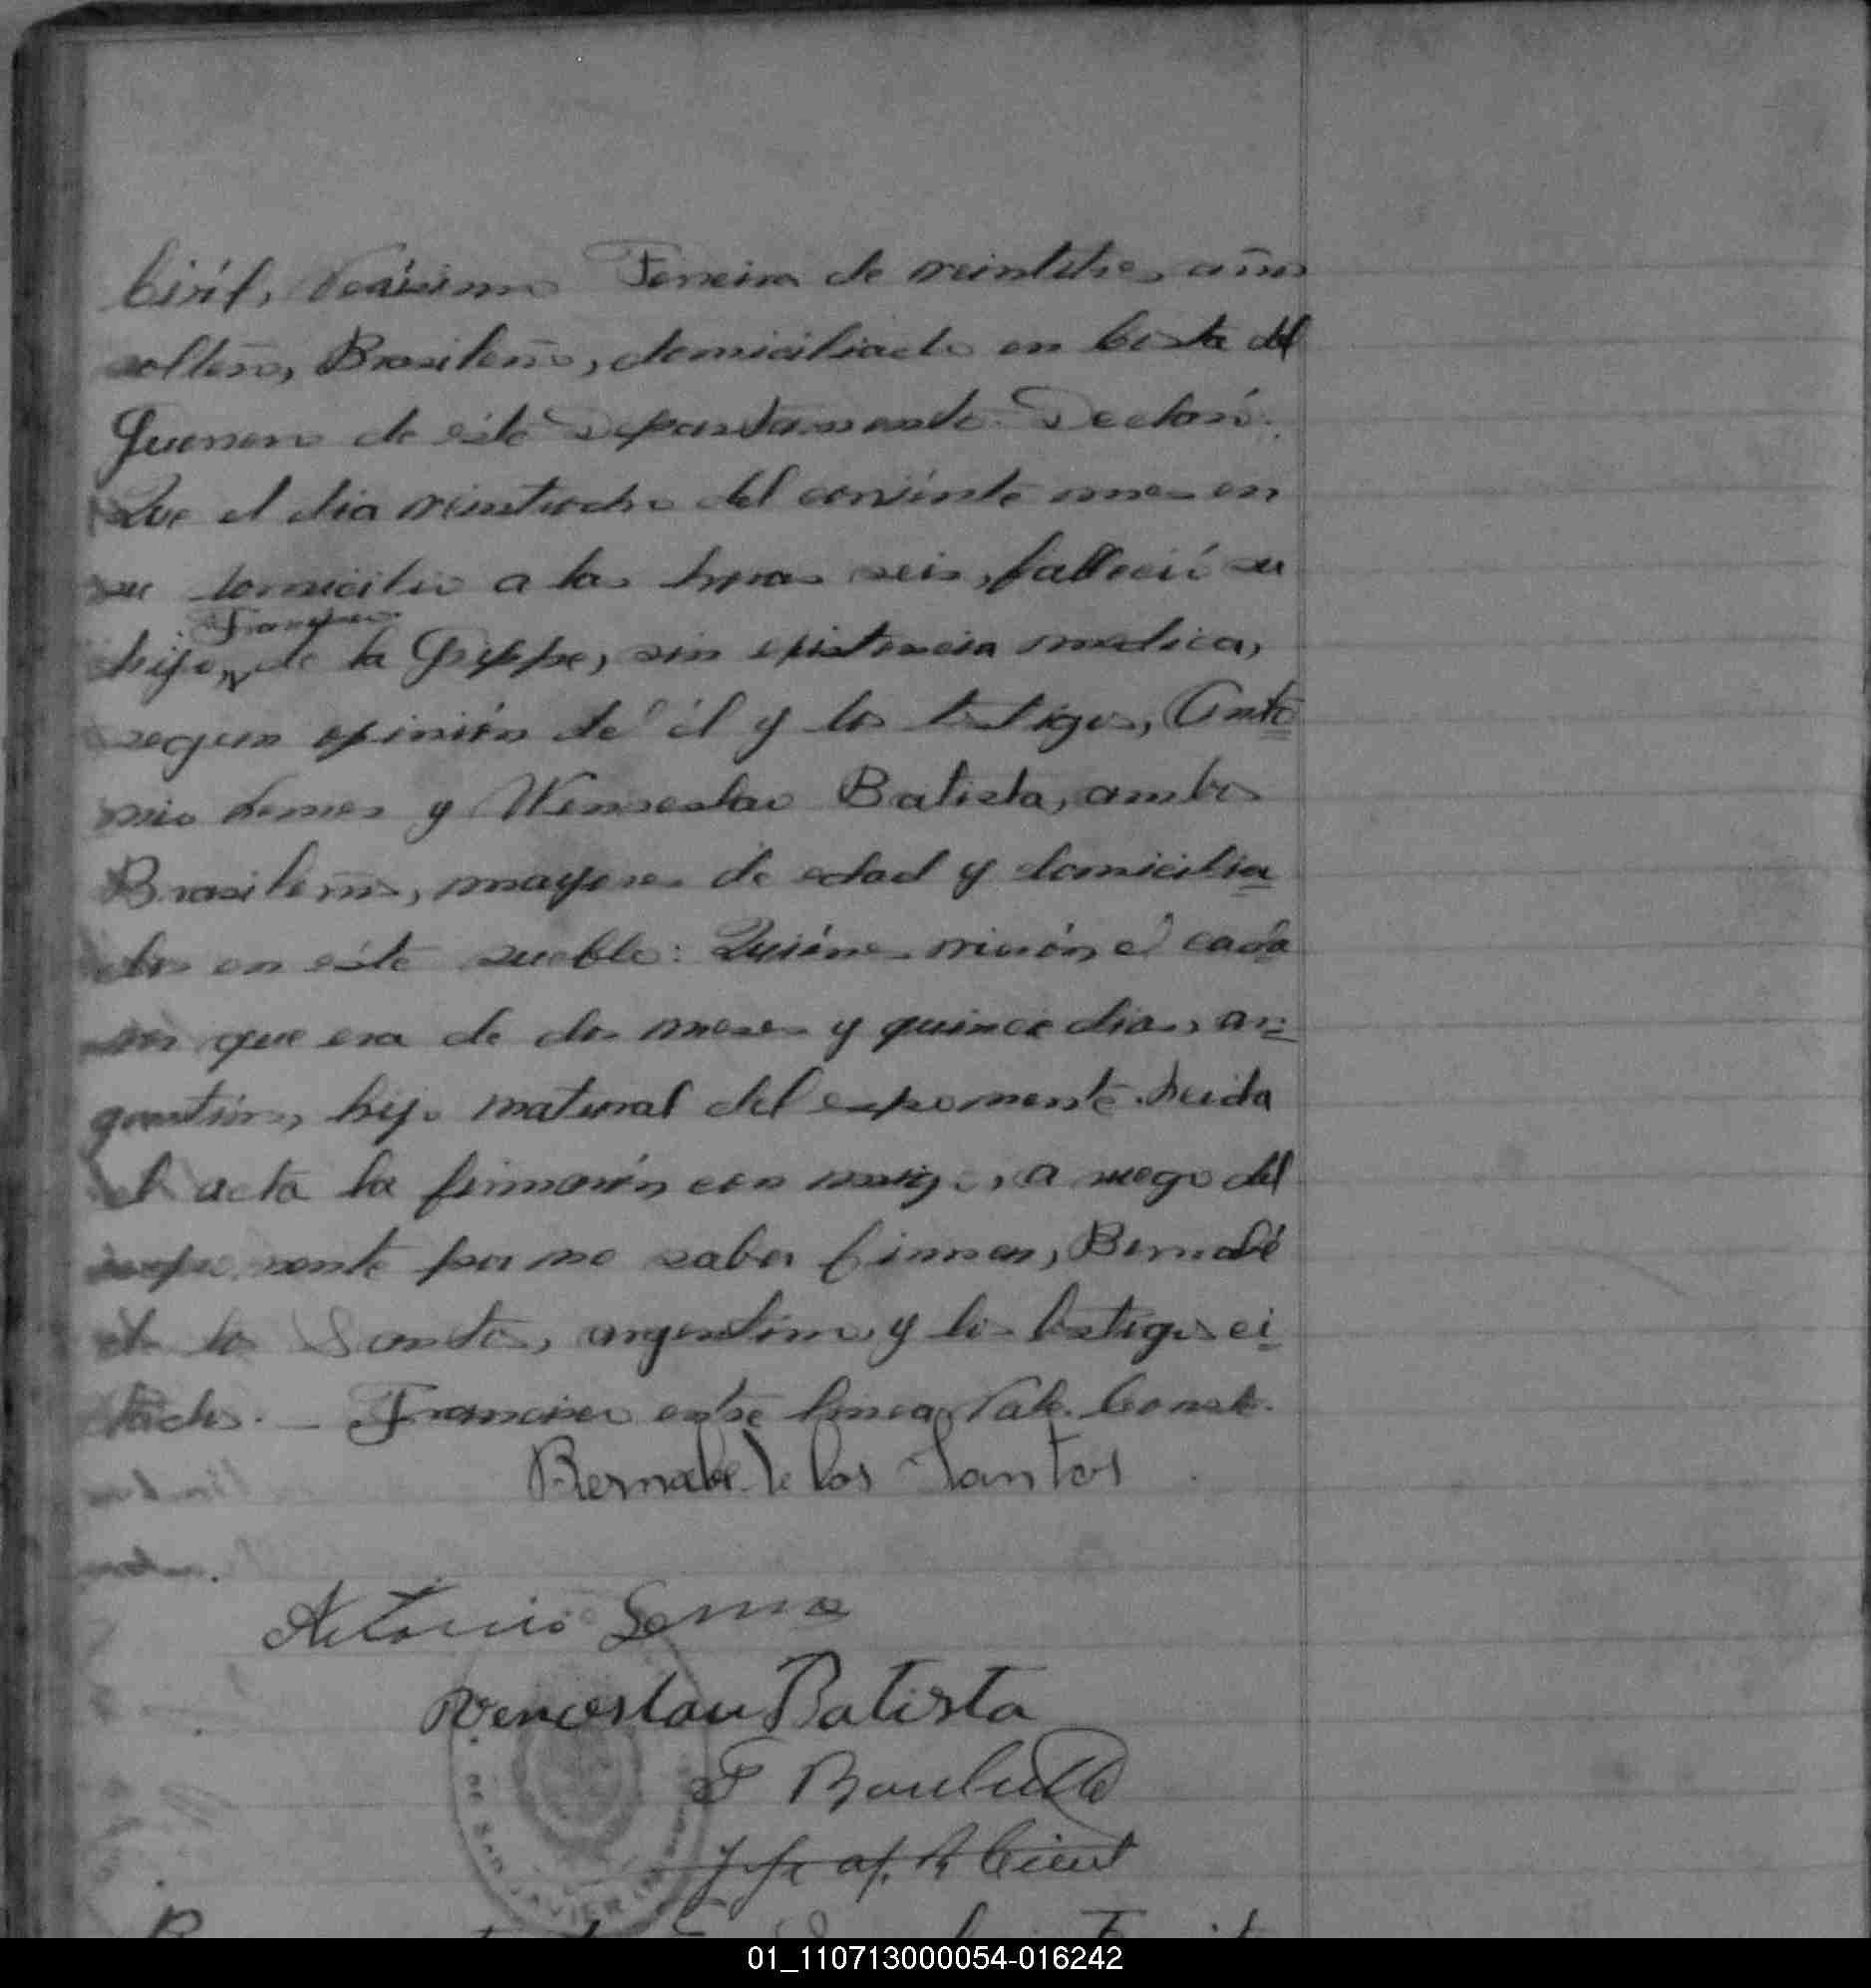 Civil, Ferreira de veintitres años
soltero, Brasileño, domiciliado en Costa del
Guerrero de éste Departamento Declaró:
Que el dia veintiocho del corriente mes en
su domicilio a las horas seis, falleció su
Francisco
hijo, de la Grippe, sin asistencia medica,
segun opinión de él y los testigos, Anto
nio Lemes y Wenseslao Batista, ambos
Brasileños, mayores de edad y domicilia
dos en éste pueblo: Quiénes vierón el cadá
ver que era de dos meses y quince dias, ar
gentino, hijo natural del exponente. Leida
el acta la firmarón con migo, a ruego del
exponente por no saber firmar, Bernabé
de los Santos, argentino y los testigos ci
tados. — Francisco entre linea. Vale. Conste.
Bernabé de los Santos
Antonio Leme
Wenceslau Batista
Jefe of. R Civil
DE SAN JAVIER
01_110713000054-016242